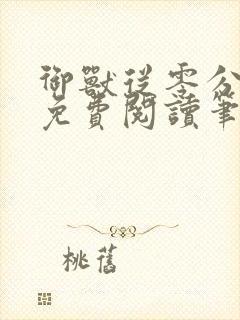 御獸從零分
免費閱讀筆
桃舊